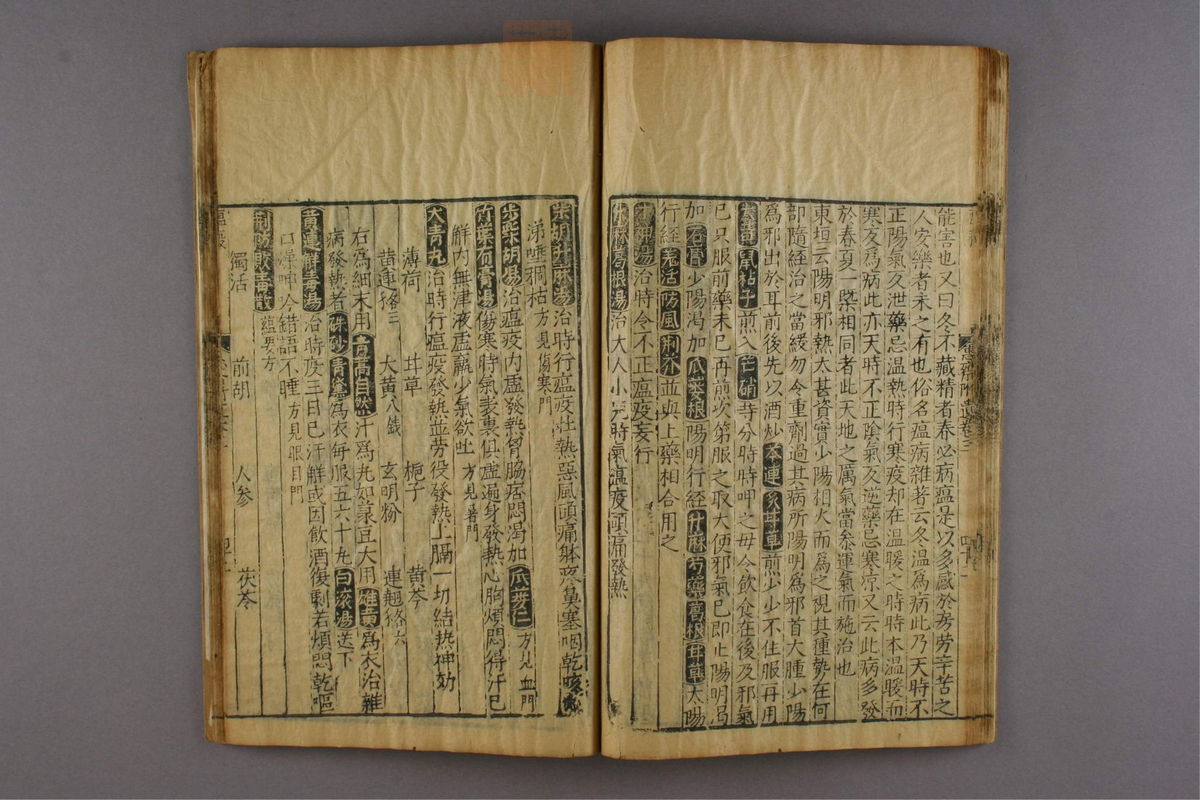 能害也又曰冬不藏精者春必病瘟是以多感於房勞辛苦之
人安樂者未之有也俗名瘟病雜者云冬温為病此乃天時不
正陽氣久泄藥忌温熱時行寒疫却在温暖之時時本温暖而
寒反為病此亦天時不正陰氣反逆藥忌寒凉又云此病多發
於春夏一槩相同者此天地之厲氣當叅運氣而施治也
東垣云陽明邪熱太甚資實少陽相火而為之視其腫勢在何
部隨經治之當緩勿令重劑過其病所陽明為邪首大腫少陽
為邪出於耳前後先以酒炒芩連炙甘草煎少少不住服再用
鼠粘子煎入芒硝等分時時呷之毋令飲食在後及邪氣
已只服前藥未已再煎次第服之取大便邪氣已即止陽明渴
加石膏少陽渴加瓜蔞根陽明行經升麻芍藥葛根甘草太陽
行經羌活防風荆芥並與上藥相合用之
神湯治時令不正瘟疫妄行
升麻葛根湯治大人小兒時氣瘟疫頭痛發熱
柴胡升麻湯治時行瘟疫壮熱惡風頭痛躰疼鼻塞咽乾咳
涕唾稠粘方見傷寒門
步柴胡湯治瘟疫内虛發熱胷脇痞悶渴加瓜蔞仁方見血門
竹葉石膏湯傷寒時氣表裏俱虛遍身發熱心胸煩悶得汗已
觧内無津液虛羸少氣欲吐方見暑門
大青丸治時行瘟疫發熱並劳役發熱上膈一切結热神効
薄荷 甘草 梔子 黄芩
黄連各三 大黄八錢 玄明粉 連翹各六
右為細末用青蒿自然汁為丸如菉豆大用雄黄為衣治雜
病發熱者硃砂青黛為衣每服五六十丸白滚湯送下
黄連觧毒湯治時疫三日已汗觧或因飲酒復剰若煩悶乾嘔
口燥呻吟錯語不睡方見眼目門
荆防敗毒散瘟要方
獨活 前胡 人参 茯苓